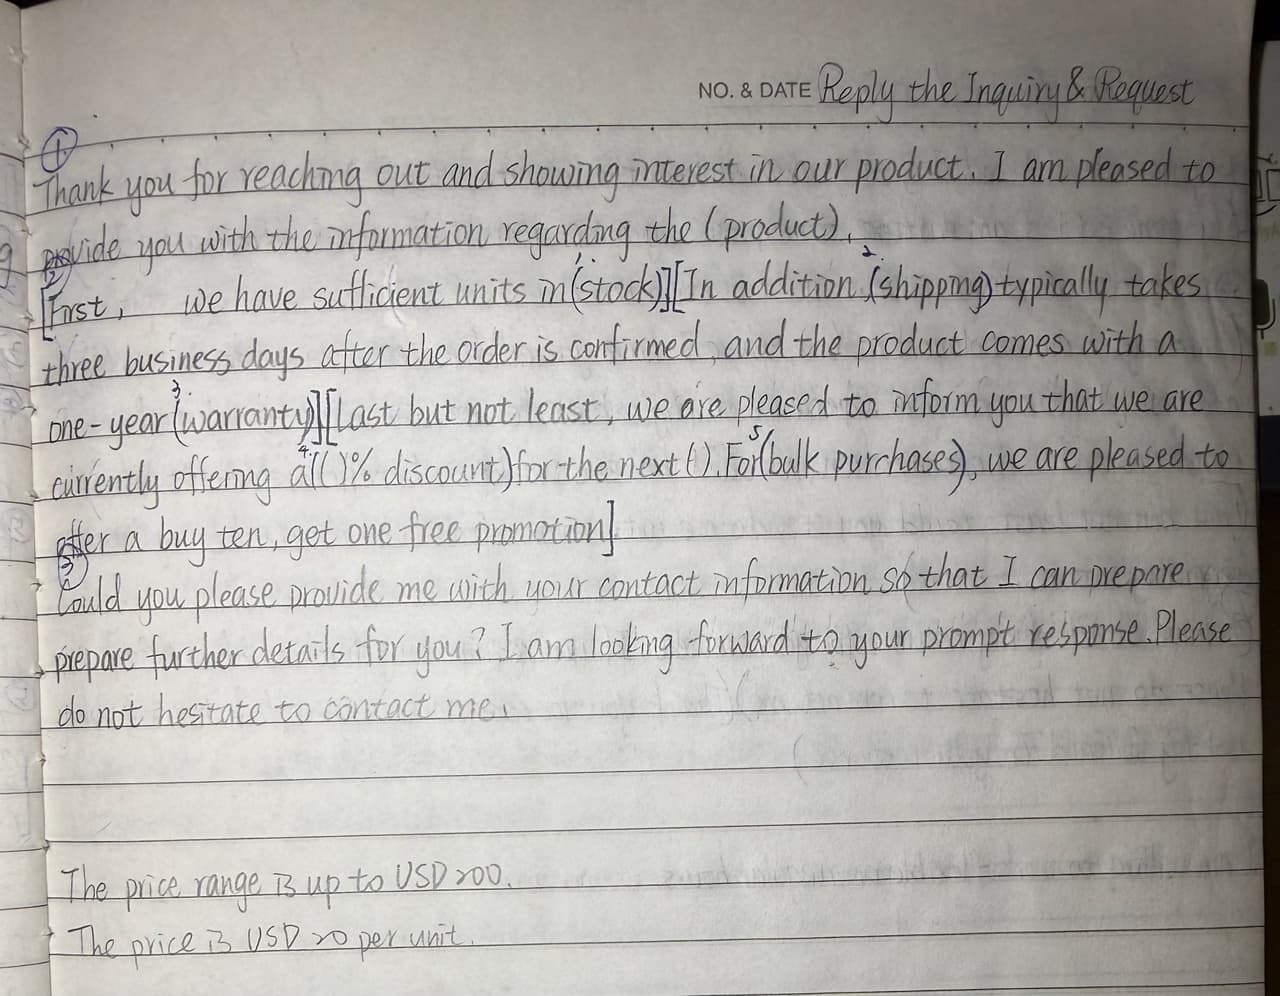 NO. & DATE Reply the Inquiry & Request
①
Thank you for reaching out and showing interest in our product. I am pleased to
provide you with the information regarding the (product).
②
[First, we have sufficient units in 1.(stock)][In addition 2.(shipping) typically takes
three business days after the order is confirmed, and the product comes with a
one-year 3.(warranty)][Last but not least, we are pleased to inform you that we are
currently offering 4.a(( )% discount) for the next ( ). For 5(bulk purchases), we are pleased to
offer a buy ten, get one free promotion]
③
Could you please provide me with your contact information so that I can prepare
prepare further details for you? I am looking forward to your prompt response. Please
do not hesitate to contact me.
The price range is up to USD 200.
The price is USD 20 per unit.